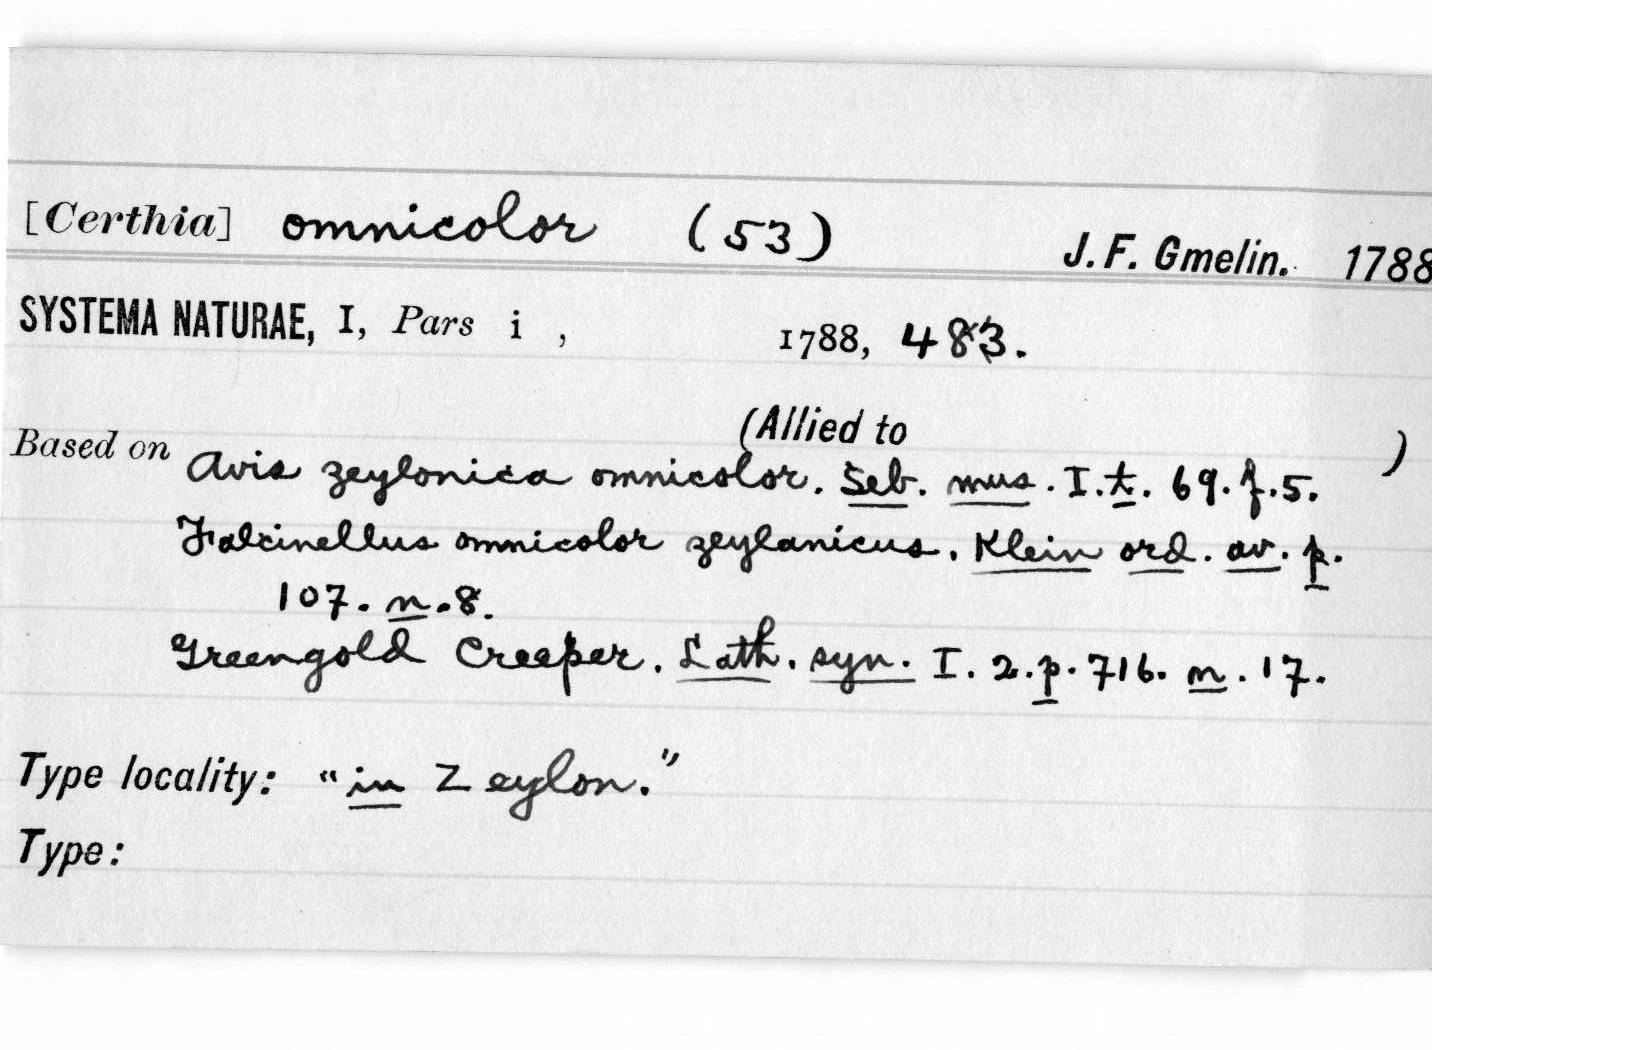 [Certhia] omnicolor (53) J. F. Gmelin. 1788
SYSTEMA NATURAE, I, Pars i , 1788, 483.
(Allied to )
Based on Avis zeylonica omnicolor. Seb. mus. I. t. 69. f. 5.
Falcinellus omnicolor zeylanicus. Klein ord. av. p.
107. n. 8.
Greengold Creeper. Lath. syn. I. 2. p. 716. n. 17.
Type locality: "in Zeylon."
Type: